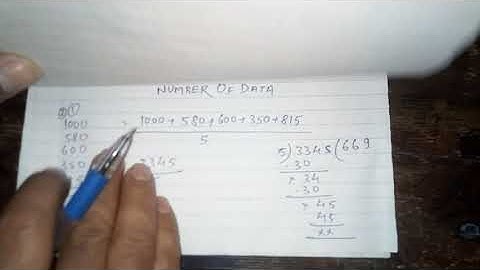 NUMBER OF DATA
①
1000
580
600
350
= 1000 + 580 + 600 + 350 + 815
5
3345
5) 3345 (669
30
× 34
30
× 45
45
××